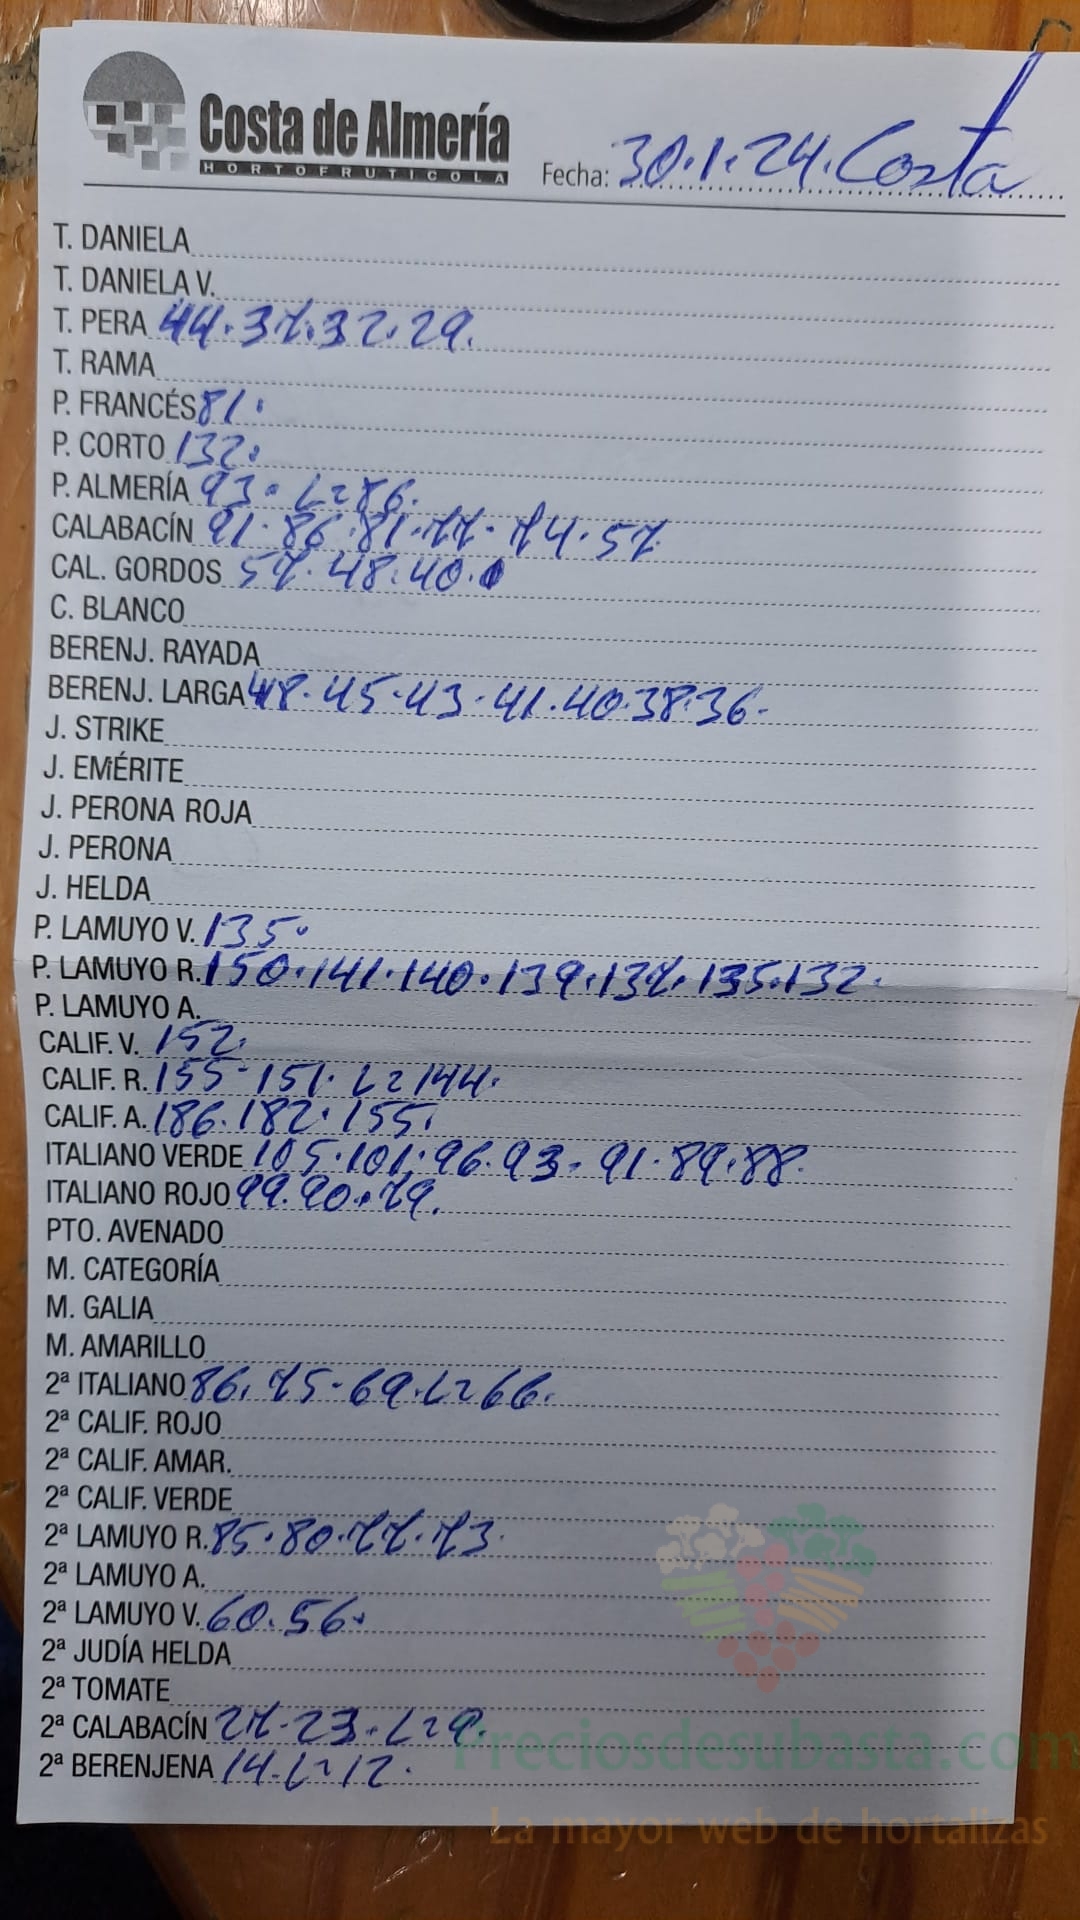 Costa de Almería
HORTOFRUTICOLA
Fecha: 30.1.24. Costa
T. DANIELA
T. DANIELA V.
T. PERA 44.37.32.29.
T. RAMA
P. FRANCÉS 81.
P. CORTO 132.
P. ALMERÍA 93. L=86.
CALABACÍN 91.86.81.77.74.57.
CAL. GORDOS 57.48.40.
C. BLANCO
BERENJ. RAYADA
BERENJ. LARGA 48.45.43.41.40.38.36.
J. STRIKE
J. EMÉRITE
J. PERONA ROJA
J. PERONA
J. HELDA
P. LAMUYO V. 135.
P. LAMUYO R. 150.141.140.139.137.135.132.
P. LAMUYO A.
CALIF. V. 152.
CALIF. R. 155.151. L=144.
CALIF. A. 186.182.155.
ITALIANO VERDE 105.101.96.93.91.89.88.
ITALIANO ROJO 99.90.79.
PTO. AVENADO
M. CATEGORÍA
M. GALIA
M. AMARILLO
2ª ITALIANO 86.75.69.L=66.
2ª CALIF. ROJO
2ª CALIF. AMAR.
2ª CALIF. VERDE
2ª LAMUYO R. 85.80.77.73.
2ª LAMUYO A.
2ª LAMUYO V. 60.56.
2ª JUDÍA HELDA
2ª TOMATE
2ª CALABACÍN 27.23.L=9.
2ª BERENJENA 14.L=12.
Preciosdesubasta.com
La mayor web de hortalizas